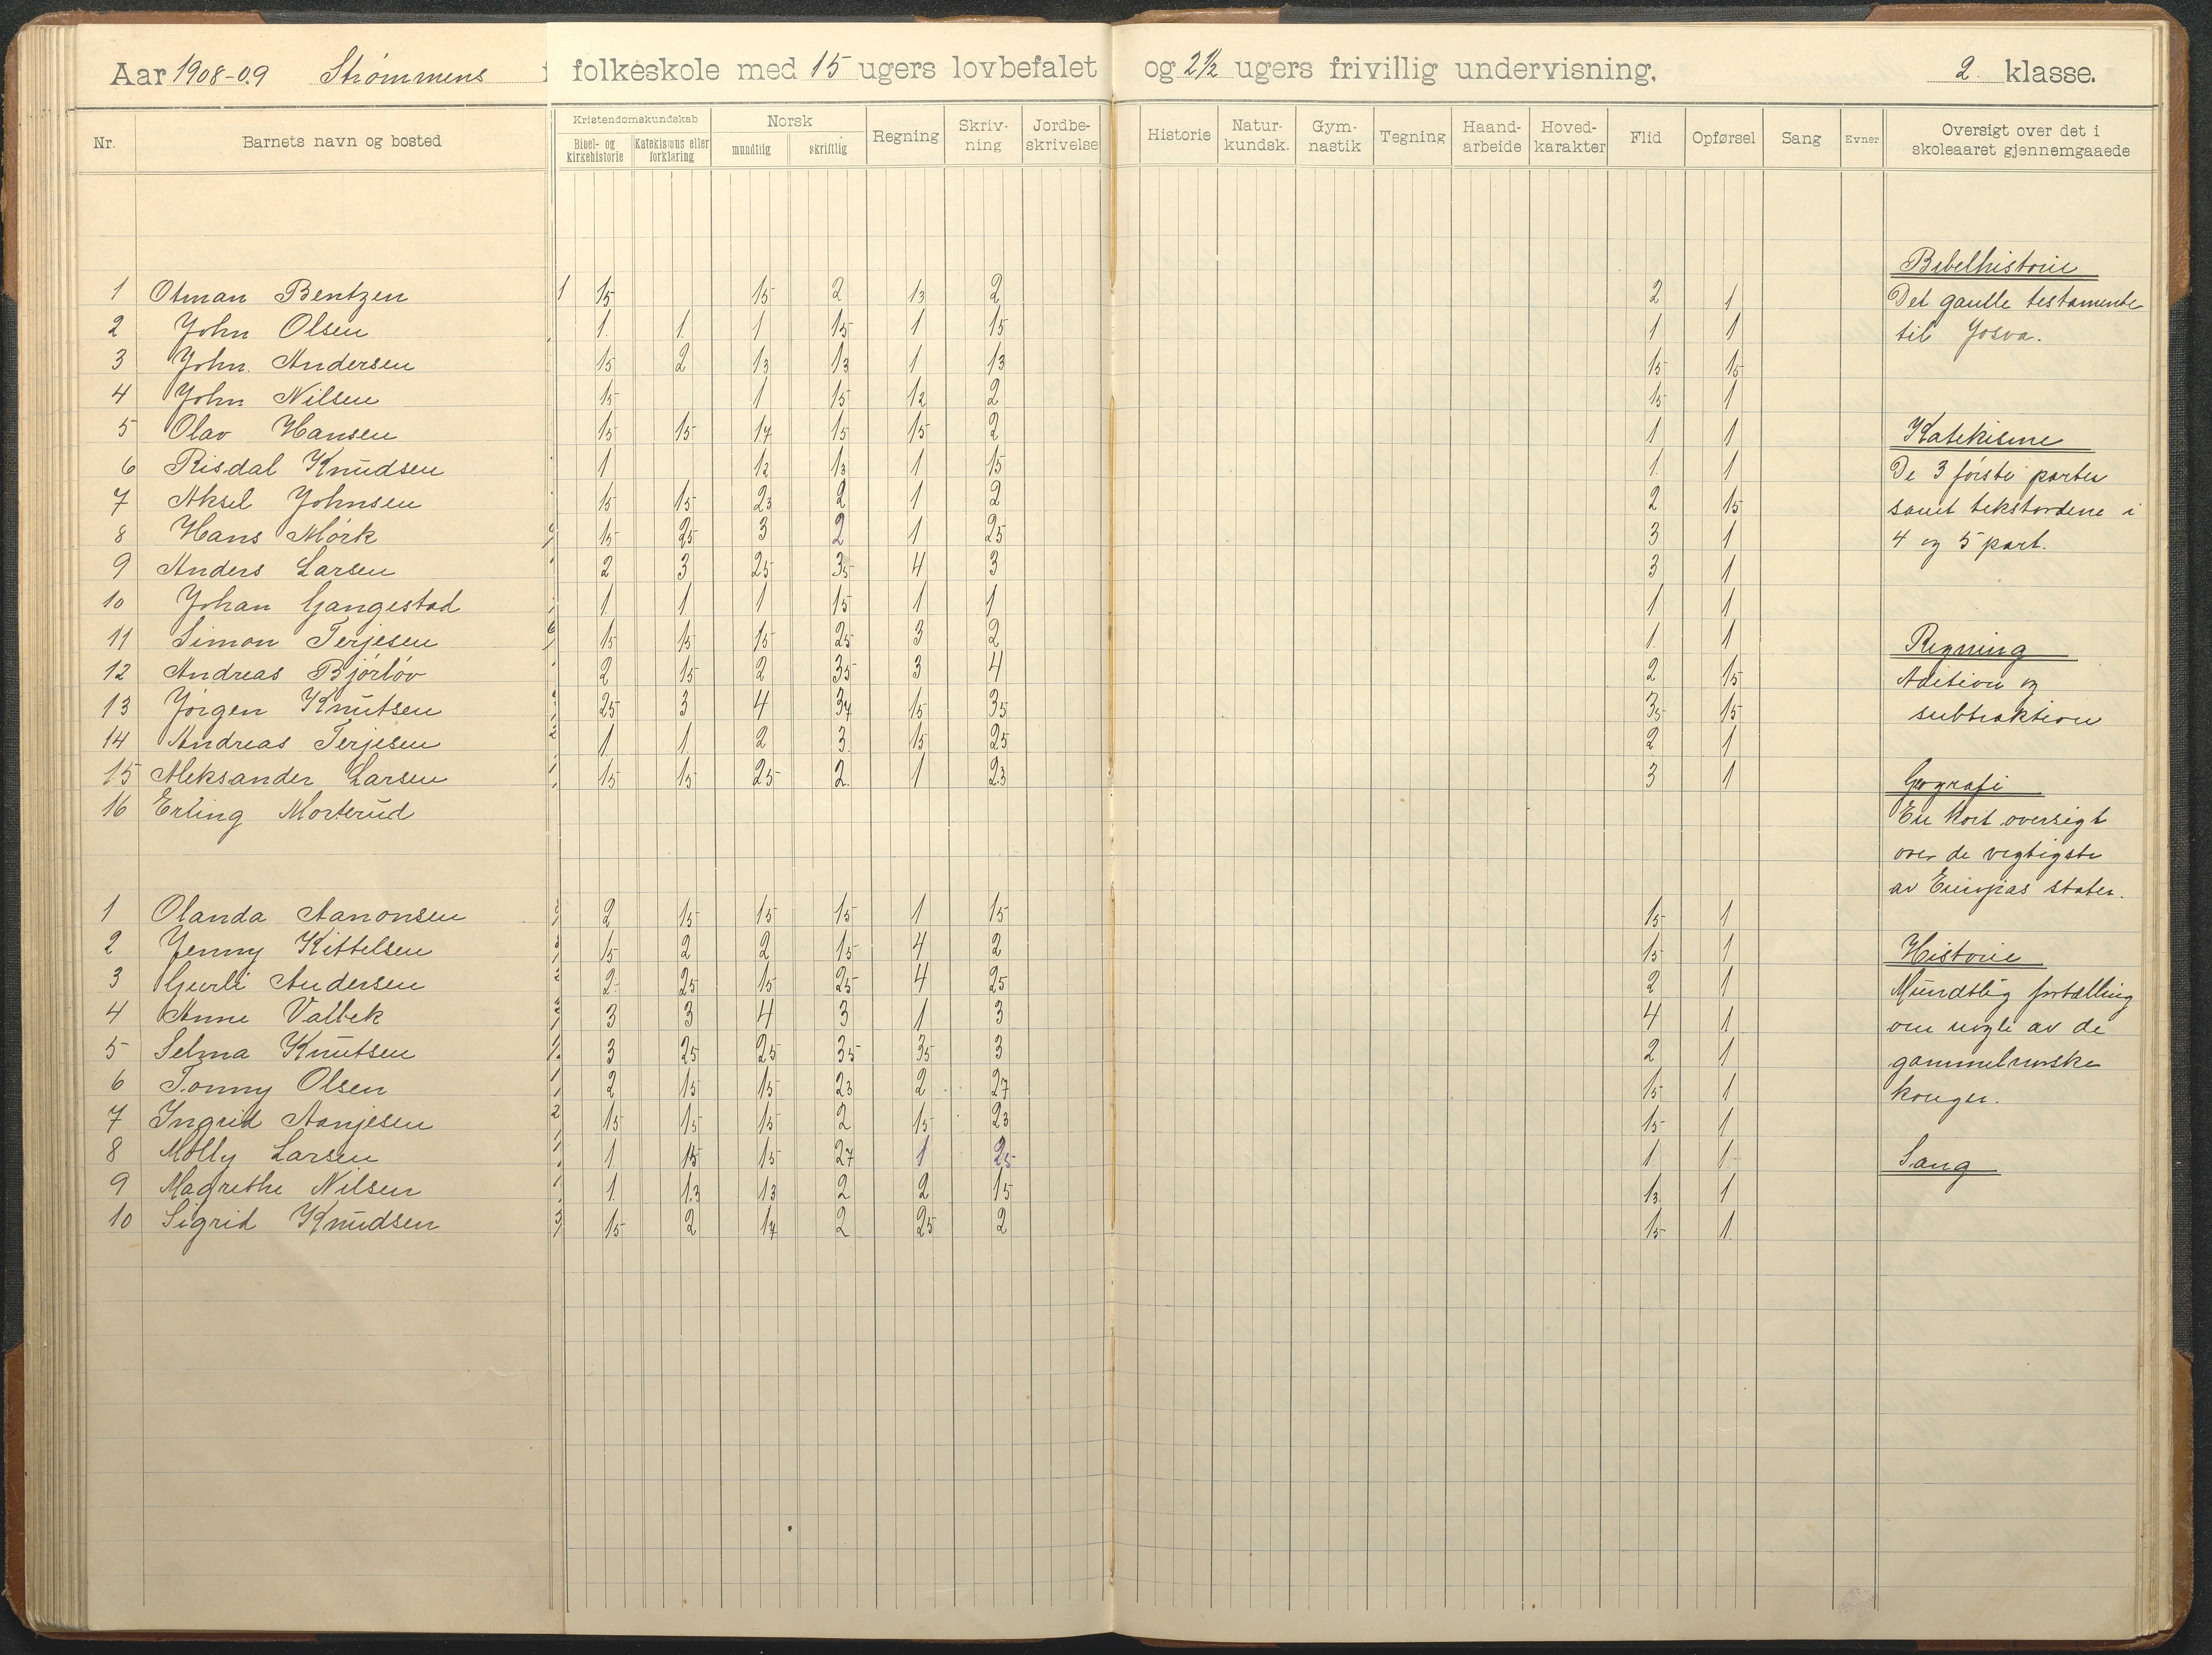 Aar 1908-09 Strømmens folkeskole med 15 ugers lovbefalet og 2 1/2 ugers frivillig undervisning. 2 klasse.
Nr. Barnets navn og bosted Kristendomskundskab Bibel- og kirkehistorie Katekismus eller forklaring Norsk mundtlig skriftlig Regning Skriv-ning Jordbe-skrivelse Historie Natur-kundsk. Gym-nastik Tegning Haand-arbeide Hoved-karakter Flid Opførsel Sang Evner Oversigt over det i skoleaaret gjennemgaaede
1 Otman Bentzen 1 15 15 2 13 2 2 1
2 John Olsen 1 1 1 15 1 15 1 1
3 John Andersen 15 2 13 13 1 13 15 15
4 John Nilsen 15 1 15 12 2 15 1
5 Olav Hansen 15 15 17 15 15 2 1 1
6 Risdal Knudsen 1 12 13 1 15 1 1
7 Aksel Johnsen 15 15 23 2 1 2 2 15
8 Hans Mörk 15 25 3 2 1 25 3 1
9 Anders Larsen 2 3 25 35 4 3 3 1
10 Johan Gangestad 1 1 1 15 1 1 1 1
11 Simon Terjesen 15 15 15 25 3 2 1 1
12 Andreas Bjórlöv 2 15 2 35 3 4 2 15
13 Jörgen Knutsen 25 3 4 37 15 35 35 15
14 Andreas Terjesen 1 1 2 3 15 25 2 1
15 Aleksander Larsen 15 15 25 2 1 23 3 1
16 Erling Morterud
1 Olanda Aanonsen 2 15 15 15 1 15 15 1
2 Jenny Kittelsen 15 2 2 15 4 2 15 1
3 Gurli Andersen 2 25 15 25 4 25 2 1
4 Anne Valbek 3 3 4 3 1 3 4 1
5 Selma Knutsen 3 25 25 35 35 3 2 1
6 Tonny Olsen 2 15 15 23 2 27 15 1
7 Ingrid Aanjesen 15 15 15 2 15 23 15 1
8 Molly Larsen 1 15 15 27 1 25 1 1
9 Magrethe Nilsen 1 13 13 2 2 15 13 1
10 Sigrid Knudsen 15 2 17 2 25 2 15 1
Bibelhistorie
Det gamle testamente
til Josva.
Katekisme
De 3 förste parter
samt tekstordene i
4 og 5 part.
Regning
Adition og
subtraktion
Geografi
En kort oversigt
over de vigtigste
av Europas stater.
Historie
Mundtlig fortælling
om nogle av de
gammelnorske
konger.
Sang